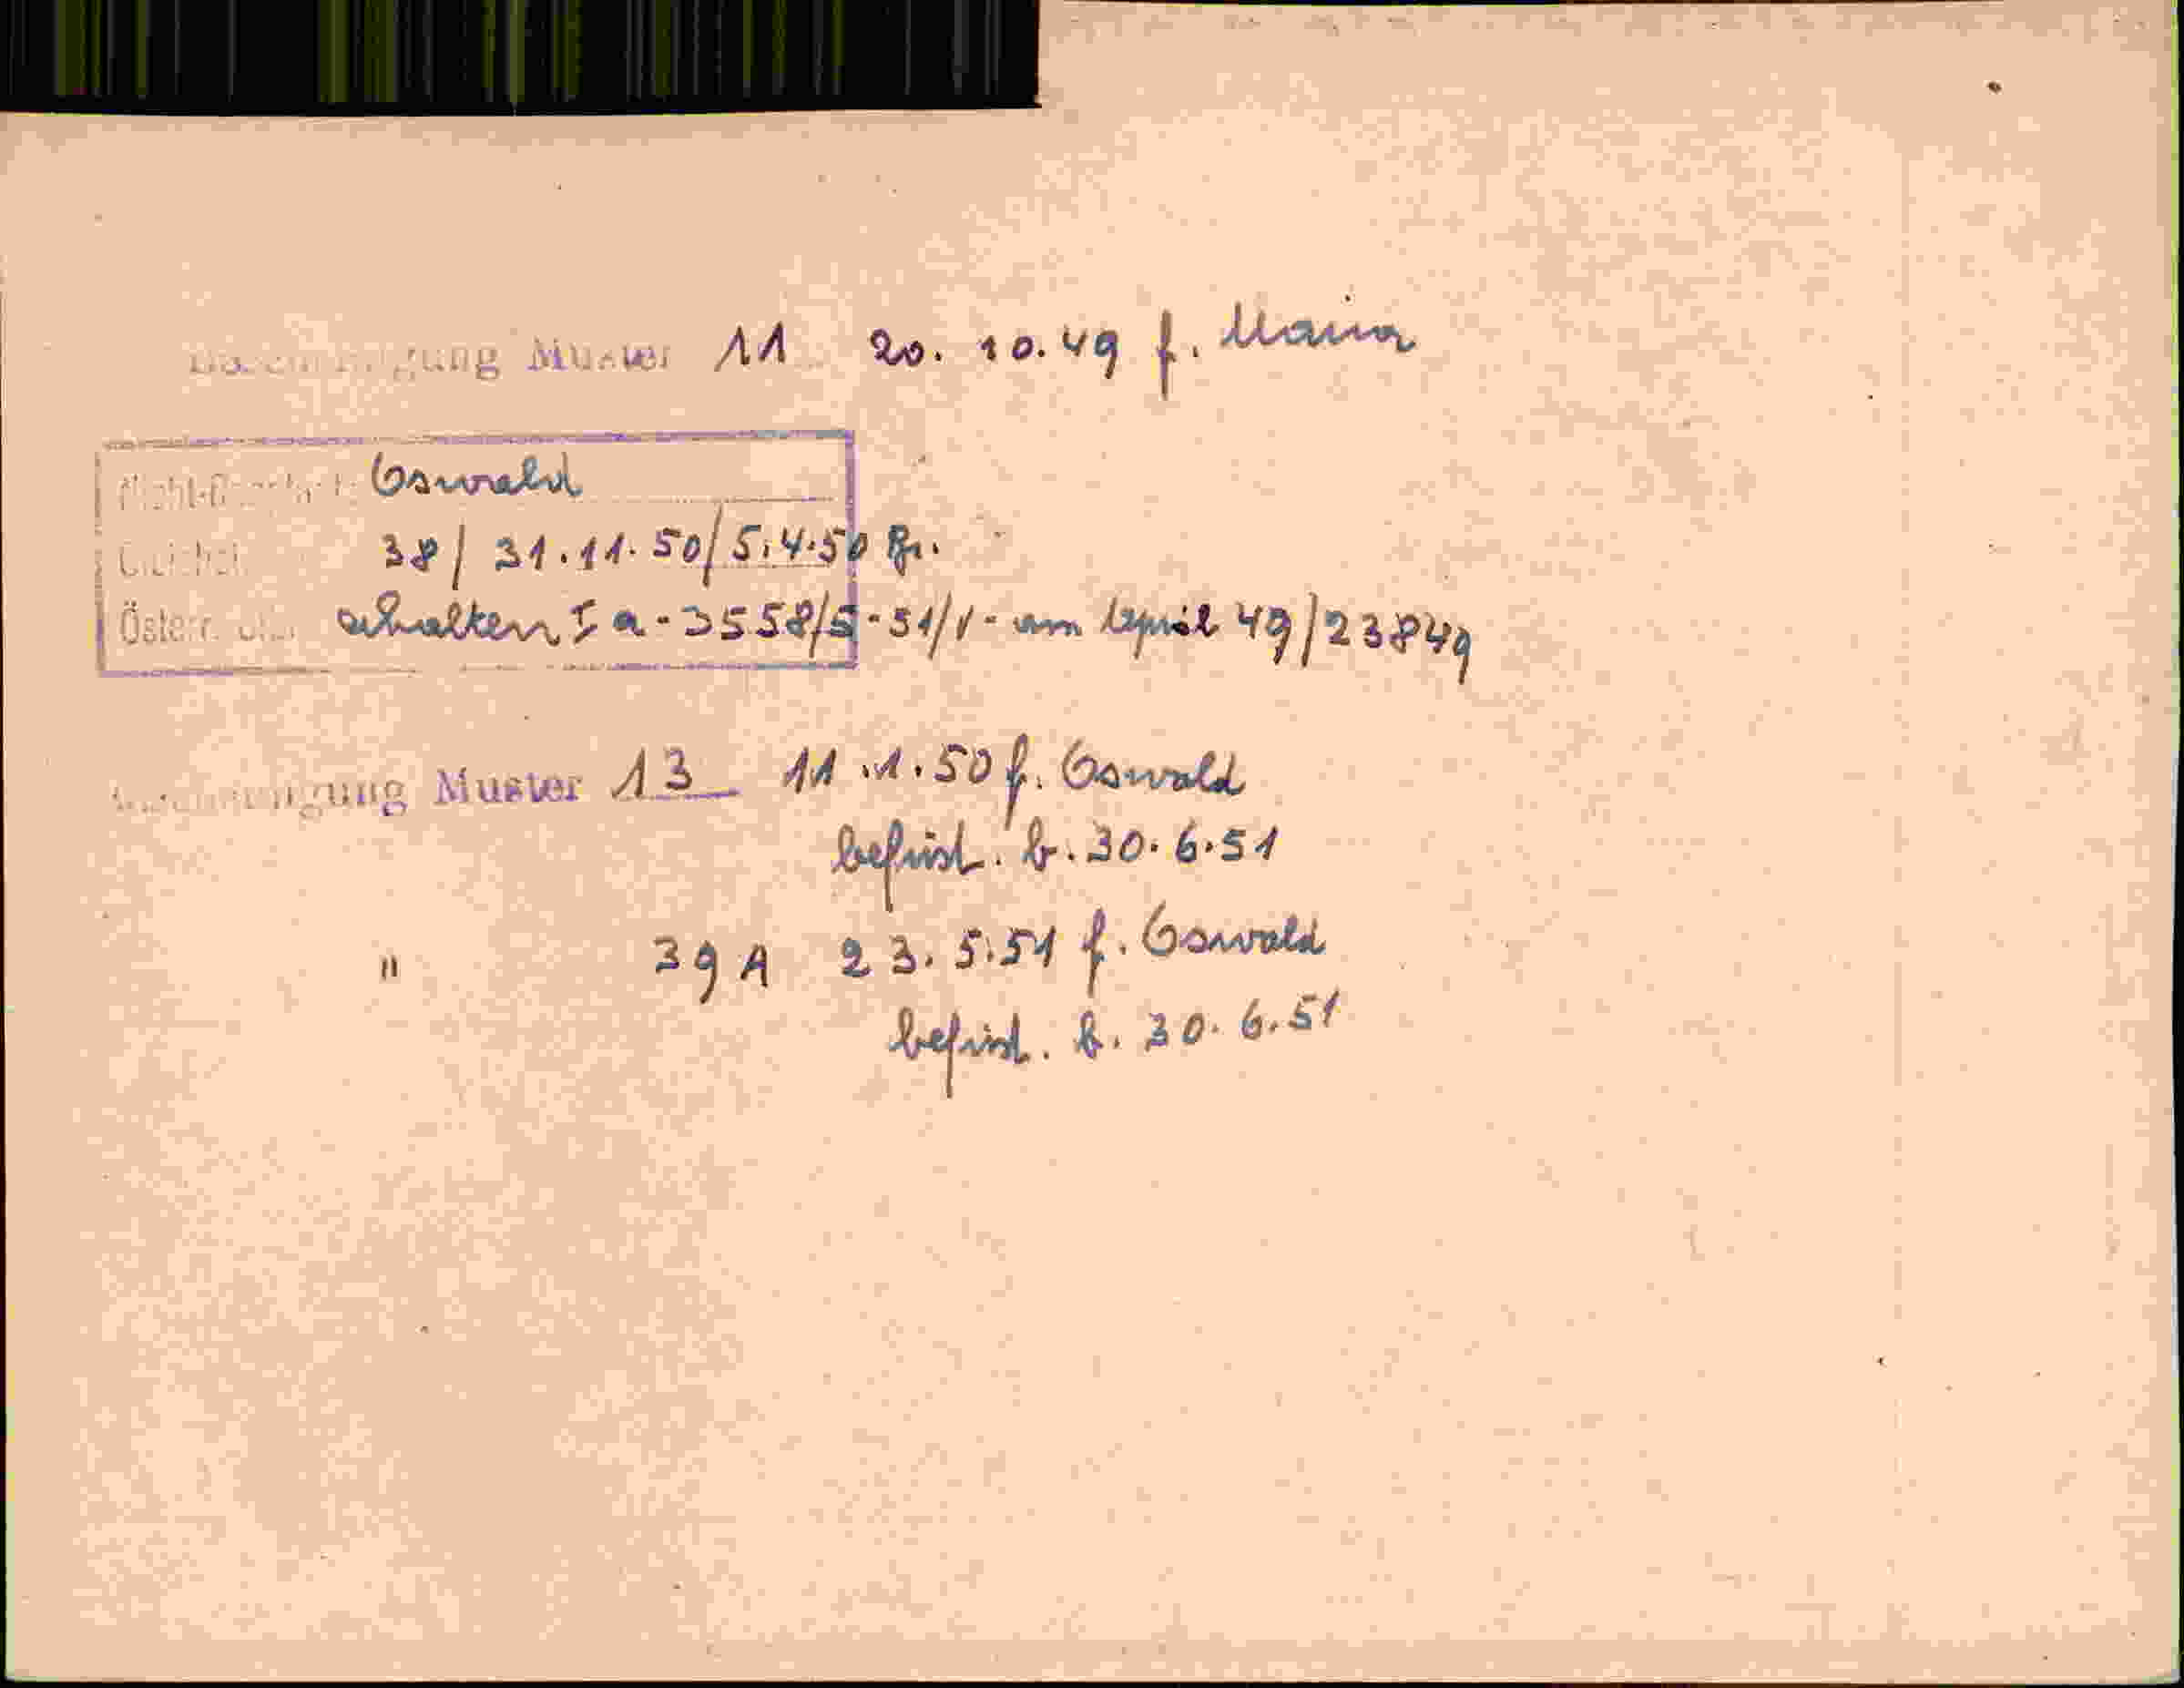 Bescheinigung Muster 11 20.10.49 f. Maria
Oswald
38 / 31.11.50 / 5.4.50
Österr. erhalten I a - 3558/5 - 51/1 - am April 49/23849
Bescheinigung Muster 13 11.1.50 f. Oswald
befrist. b. 30.6.51
" 39 A 23.5.51 f. Oswald
befrist. b. 30.6.51